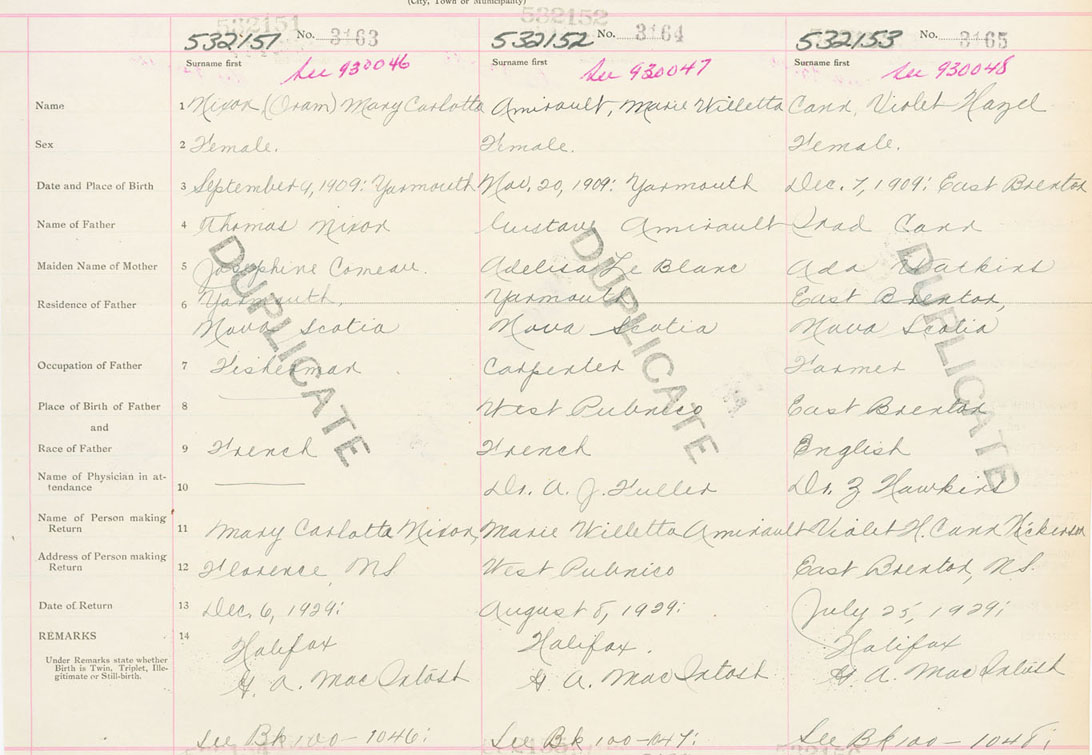 (City, Town or Municipality)
532151 532152
532151 No. 3163 532152 No. 3164 532153 No. 3165
Surname first Surname first Surname first
See 930046 See 930047 See 930048
Name 1 Nixon (Oram) Mary Carlotta Amirault, Marie Willetta Cann, Violet Hazel
Sex 2 Female. Female. Female.
Date and Place of Birth 3 September 9, 1909: Yarmouth Nov. 20, 1909: Yarmouth Dec. 7, 1909: East Brenton
Name of Father 4 Thomas Nixon Gustave Amirault Cann
Maiden Name of Mother 5 Josephine Comeau. Adelisa Le Blanc Ada Watkins
Residence of Father 6 Yarmouth, Yarmouth East Brenton,
Nova Scotia Nova Scotia Nova Scotia
Occupation of Father 7 Fisherman Carpenter Farmer
Place of Birth of Father 8 West Pubnico East Brenton
and
Race of Father 9 French French English
Name of Physician in at-
tendance 10 Dr. A. J. Fuller Dr. Z Hawkins
Name of Person making
Return 11 Mary Carlotta Nixon, Marie Willetta Amirault Violet H. Cann Nickerson
Address of Person making
Return 12 Florence, N.S. West Pubnico East Brenton, N.S.
Date of Return 13 Dec. 6, 1929: August 8, 1929: July 25, 1929:
REMARKS 14 Halifax Halifax. Halifax
Under Remarks state whether
Birth is Twin, Triplet, Ille-
gitimate or Still-birth.
G. A. MacIntosh G. A. MacIntosh G. A. MacIntosh
See Bk 100-1046: See Bk 100-1047: See Bk 100-1048:
DUPLICATE DUPLICATE DUPLICATE